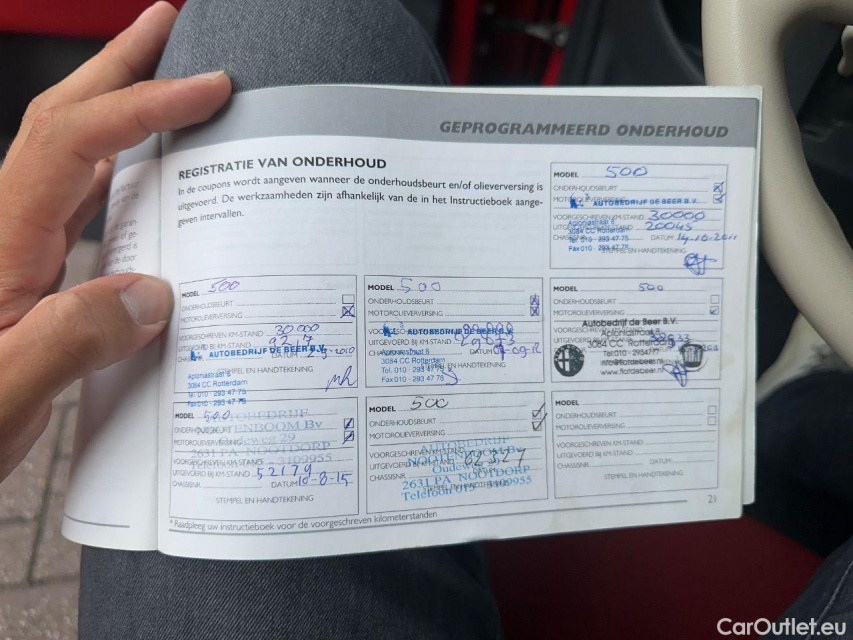 GEPROGRAMMEERD ONDERHOUD
REGISTRATIE VAN ONDERHOUD
In de coupons wordt aangeven wanneer de onderhoudsbeurt en/of olieverversing is
uitgevoerd. De werkzaamheden zijn afhankelijk van de in het Instructieboek aange-
geven intervallen.
MODEL 500
ONDERHOUDSBEURT
AUTOBEDRIJF DE BEER B.V.
VOORGESCHREVEN KM-STAND 30000
Aploniastraat 5
UITGEVOERD BIJ KM-STAND 20045
3084 CC Rotterdam
CHASSISNR. DATUM 14-10-2011
Tel. 010 - 293 47 75
Fax 010 - 293 47 78
STEMPEL EN HANDTEKENING
MODEL 500
ONDERHOUDSBEURT
MOTOROLIEVERVERSING
VOORGESCHREVEN KM-STAND 30000
UITGEVOERD BIJ KM-STAND
AUTOBEDRIJF DE BEER B.V.
DATUM
Aploniastraat 5
STEMPEL EN HANDTEKENING
3084 CC Rotterdam
Tel. 010 - 293 47 75
Fax 010 - 293 47 78
MODEL 500
ONDERHOUDSBEURT
MOTOROLIEVERVERSING
AUTOBEDRIJF DE BEER B.V.
DATUM
Aploniastraat 5
3084 CC Rotterdam
STEMPEL EN HANDTEKENING
Tel. 010 - 293 47 75
Fax 010 - 293 47 78
MODEL 500
ONDERHOUDSBEURT
MOTOROLIEVERVERSING
Autobedrijf de Beer B.V.
Aploniastraat 5
3084 CC Rotterdam
Tel:010 - 2934777
info@fiatdebeer.nl
www.fiatdebeer.nl
MODEL 500
AUTOBEDRIJF
ONDERHOUDSBEURT
NOOTENBOOM Bv
MOTOROLIEVERVERSING
Oudeweg 29
2631 PA NOOTDORP
UITGEVOERD BIJ KM-STAND 52179
CHASSISNR. DATUM 10-8-15
STEMPEL EN HANDTEKENING
MODEL 500
ONDERHOUDSBEURT
MOTOROLIEVERVERSING
AUTOBEDRIJF
NOOTENBOOM Bv
UITGEVOERD BIJ KM-STAND
Oudeweg
2631 PA NOOTDORP
Telefoon 015 - 3109955
MODEL
ONDERHOUDSBEURT
MOTOROLIEVERVERSING
VOORGESCHREVEN KM-STAND
UITGEVOERD BIJ KM-STAND
CHASSISNR. DATUM
STEMPEL EN HANDTEKENING
* Raadpleeg uw instructieboek voor de voorgeschreven kilometerstanden
21
CarOutlet.eu